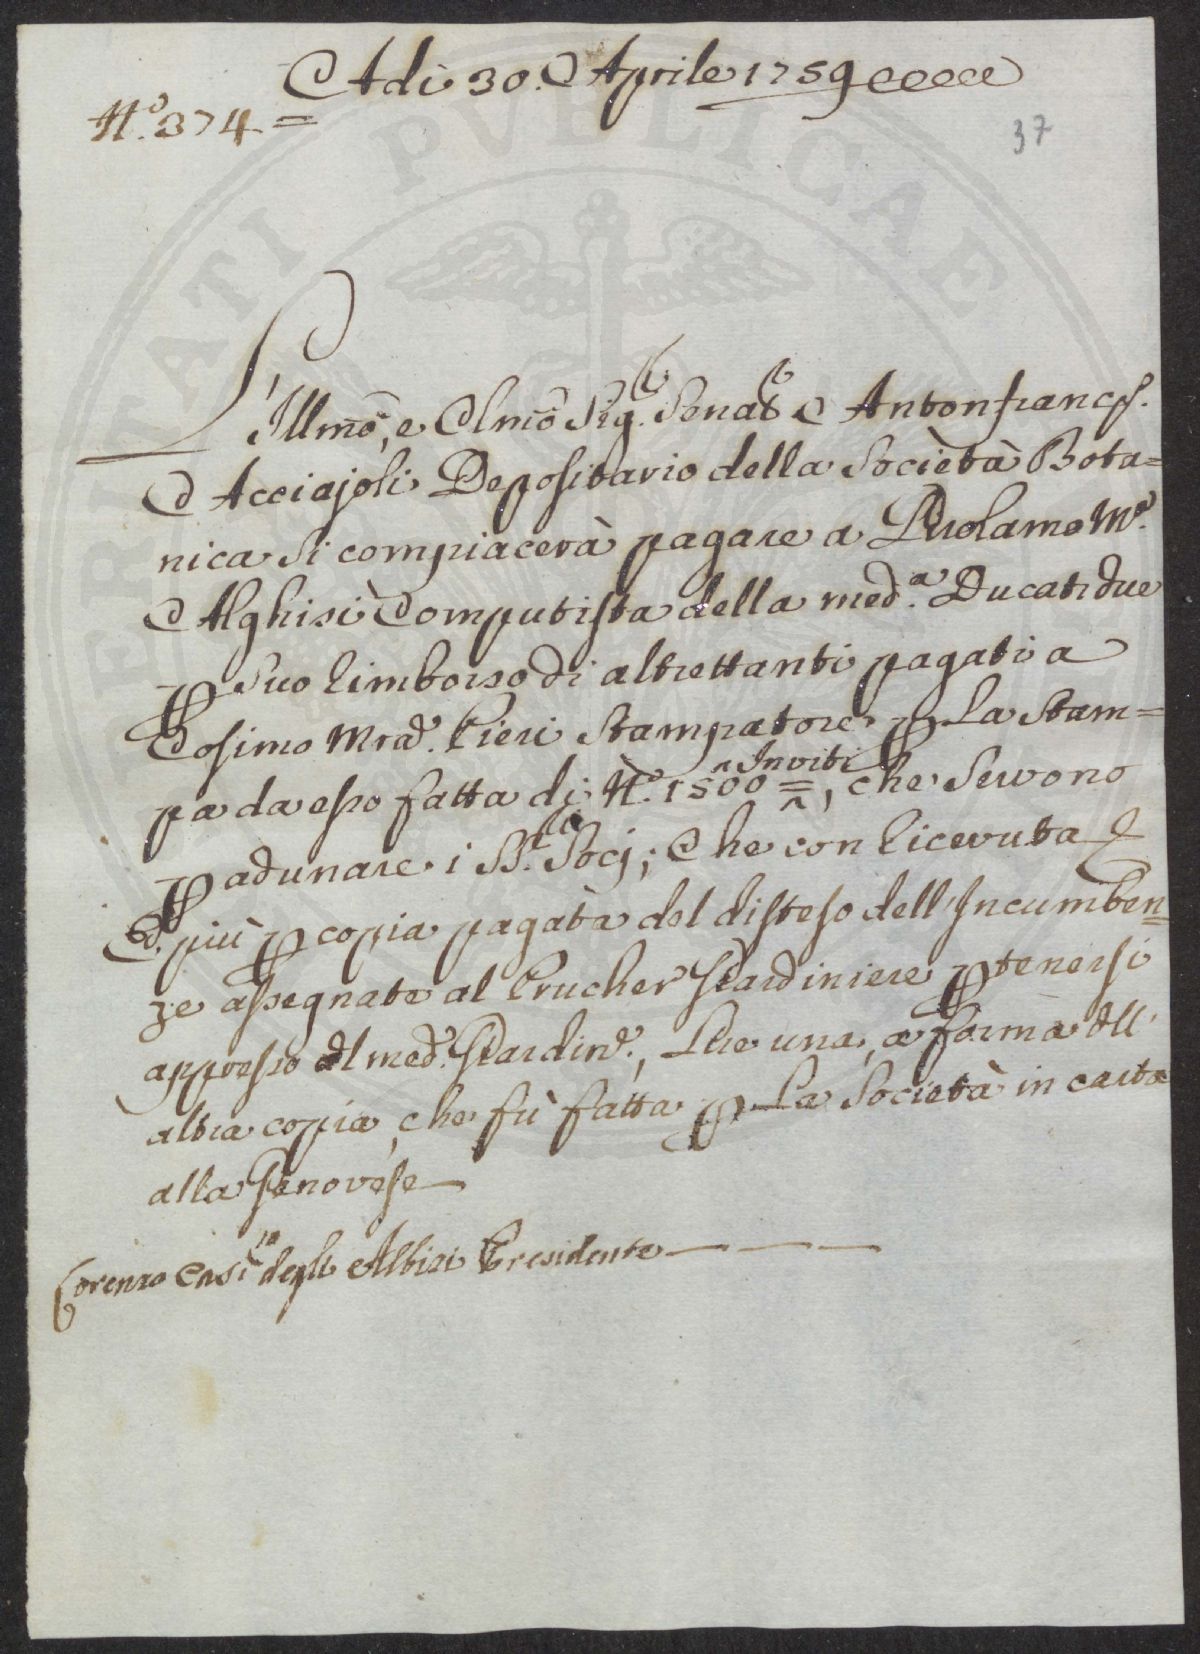 Adi 30. Aprile 1759
N.º 374 =
37
L'Illmo, e Clmo Sig.r Senat.r Antonfranc.
Acciajoli Depositario della Società Bota=
nica si compiacerà pagare a Girolamo M.a
Alghisi Computista della med.a Ducati due
p suo rimborso di altrettanti pagati a
Cosimo M Pieri Stampatore p la Stam=
pa da esso fatta di N.º 1500 = Inviti, che servono
p adunare i SS.ri Socj; Che con ricevuta
E più p copia pagata del disteso dell'Incumben=
ze assegnate al Prucher Giardiniere p tenersi
appresso al med.º Giardin.e, Lire una, a forma dell'
altra copia, che fù fatta p la Società in carta
alla Genovese
Lorenzo degli Albizi Presidente
PVBLICAE